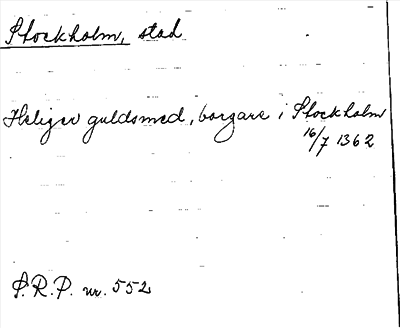 Stockholm, stad
Heliger guldsmed, borgare i Stockholm
16/7 1362
S.R.P. nr. 552